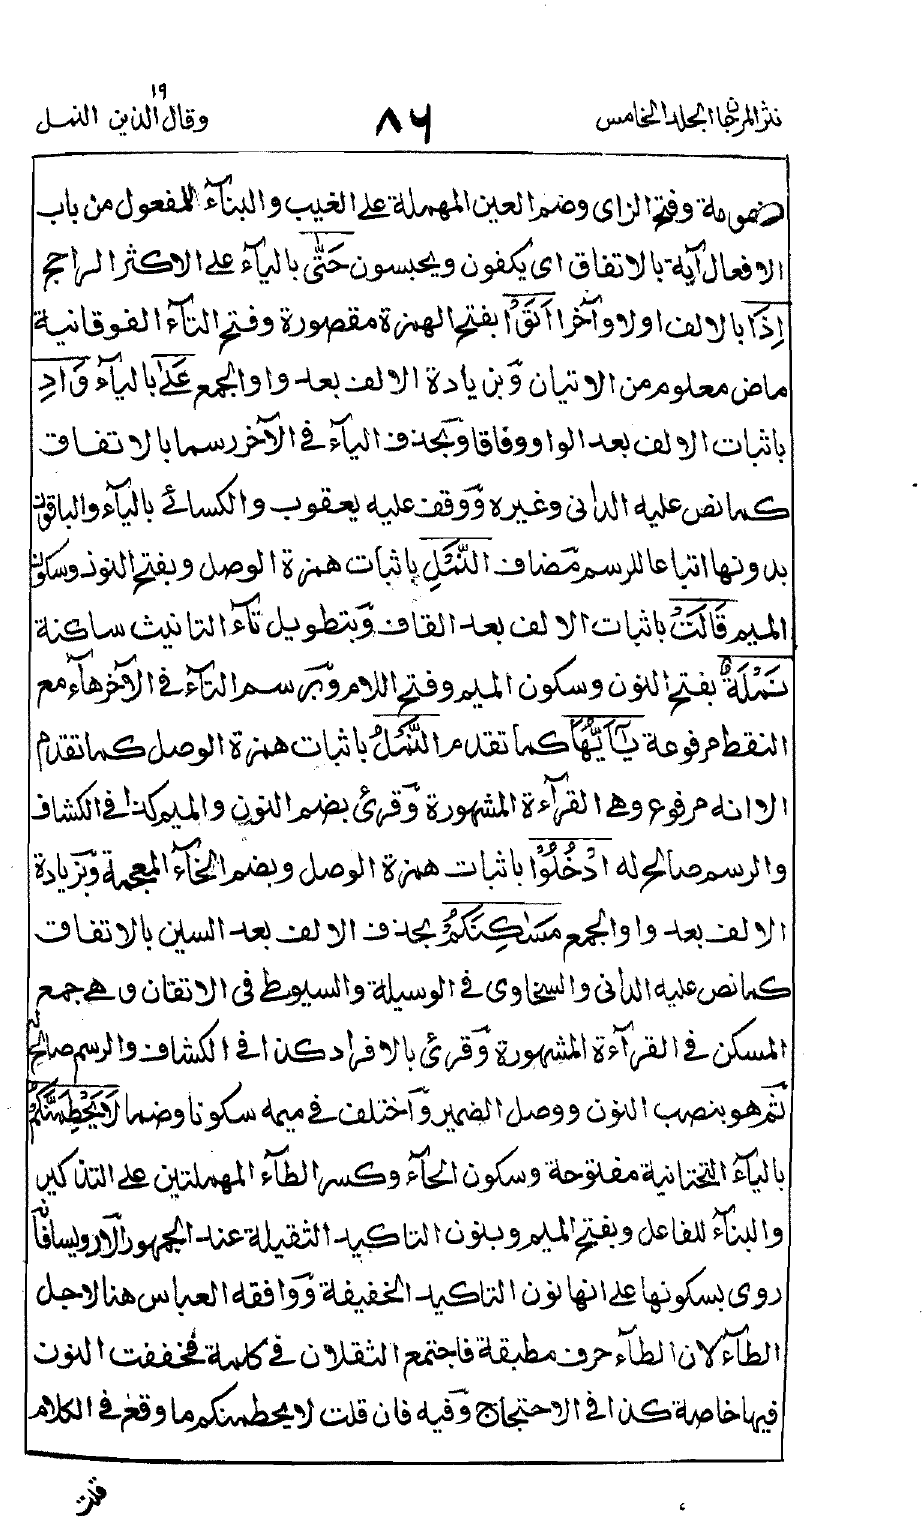 نثر المرجان الجلد الخامس
٨٦
وقال الذين ١٩ النمل
ضمومة وفتح الزاى وضم العين المهملة على الغيب والبنآء للمفعول من باب
الافعال آية بالاتفاق اى يكفون ويحبسون حَتّٰى باليآء على الاكثر الراجح
اِذَا بالالف اولا وآخرا اَتَوْا بفتح الهمزة مقصورة وفتح التآء الفوقانية
ماض معلوم من الاتيان وَبزيادة الالف بعد واو الجمع عَلٰى باليآء وَادِ
باثبات الالف بعد الواو وفاقا وَبحذف اليآء فى الآخر رسما بالاتفاق
كما نص عليه الدانى وغيره وَوقف عليه يعقوب والكسائى باليآء والباقون
بدونها اتباعا للرسم مَضاف النَّمْلِ باثبات همزة الوصل وبفتح النون وسكون
الميم قَالَتْ باثبات الالف بعد القاف وَبتطويل تآء التانيث ساكنة
نَمْلَةٌ بفتح النون وسكون الميم وفتح اللام وَبرسم التآء فى الآخر هآء مع
النقط مرفوعة يٰٓاَيُّهَا كما تقدم النَّمْلُ باثبات همزة الوصل كما تقدم
الا انه مرفوع وهى القرآءة المشهورة وَقرئ بضم النون والميم كذا فى الكشاف
والرسم صالح له ادْخُلُوْا باثبات همزة الوصل وبضم الخآء المعجمة وَبزيادة
الالف بعد واو الجمع مَسٰكِنَكُمْ بحذف الالف بعد السين بالاتفاق
كما نص عليه الدانى والسخاوى فى الوسيلة والسيوطى فى الاتقان وهى جمع
المسكن فى القرآءة المشهورة وَقرئ بالافراد كذا فى الكشاف والرسم صالح له
ثم هو بنصب النون ووصل الضمير وَاختلف فى ميمه سكونا وضما لَا يَحْطِمَنَّكُمْ
باليآء التحتانية مفتوحة وسكون الحآء وكسر الطآء المهملتين على التذكير
والبنآء للفاعل وبفتح الميم وبنون التاكيد الثقيلة عند الجمهور الا رويسا فانه
روى بسكونها على انها نون التاكيد الخفيفة وَوافقه العباس هنا لاجل
الطآء لان الطآء حرف مطبقة فاجتمع الثقلان فى كلمة فخففت النون
فيها خاصة كذا فى الاحتجاج وَفيه فان قلت لا يحطمنكم ما وقع فى الكلام
قلت